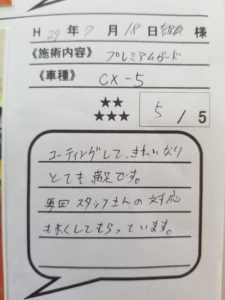 H 29年 7月 18日 様
《施術内容》 プレミアムガード
《車種》 CX-5
★★
★★★
5 / 5
コーティングして、きれいなり
とても満足です。
毎回スタッフさんの対応
よくしてもらっています。